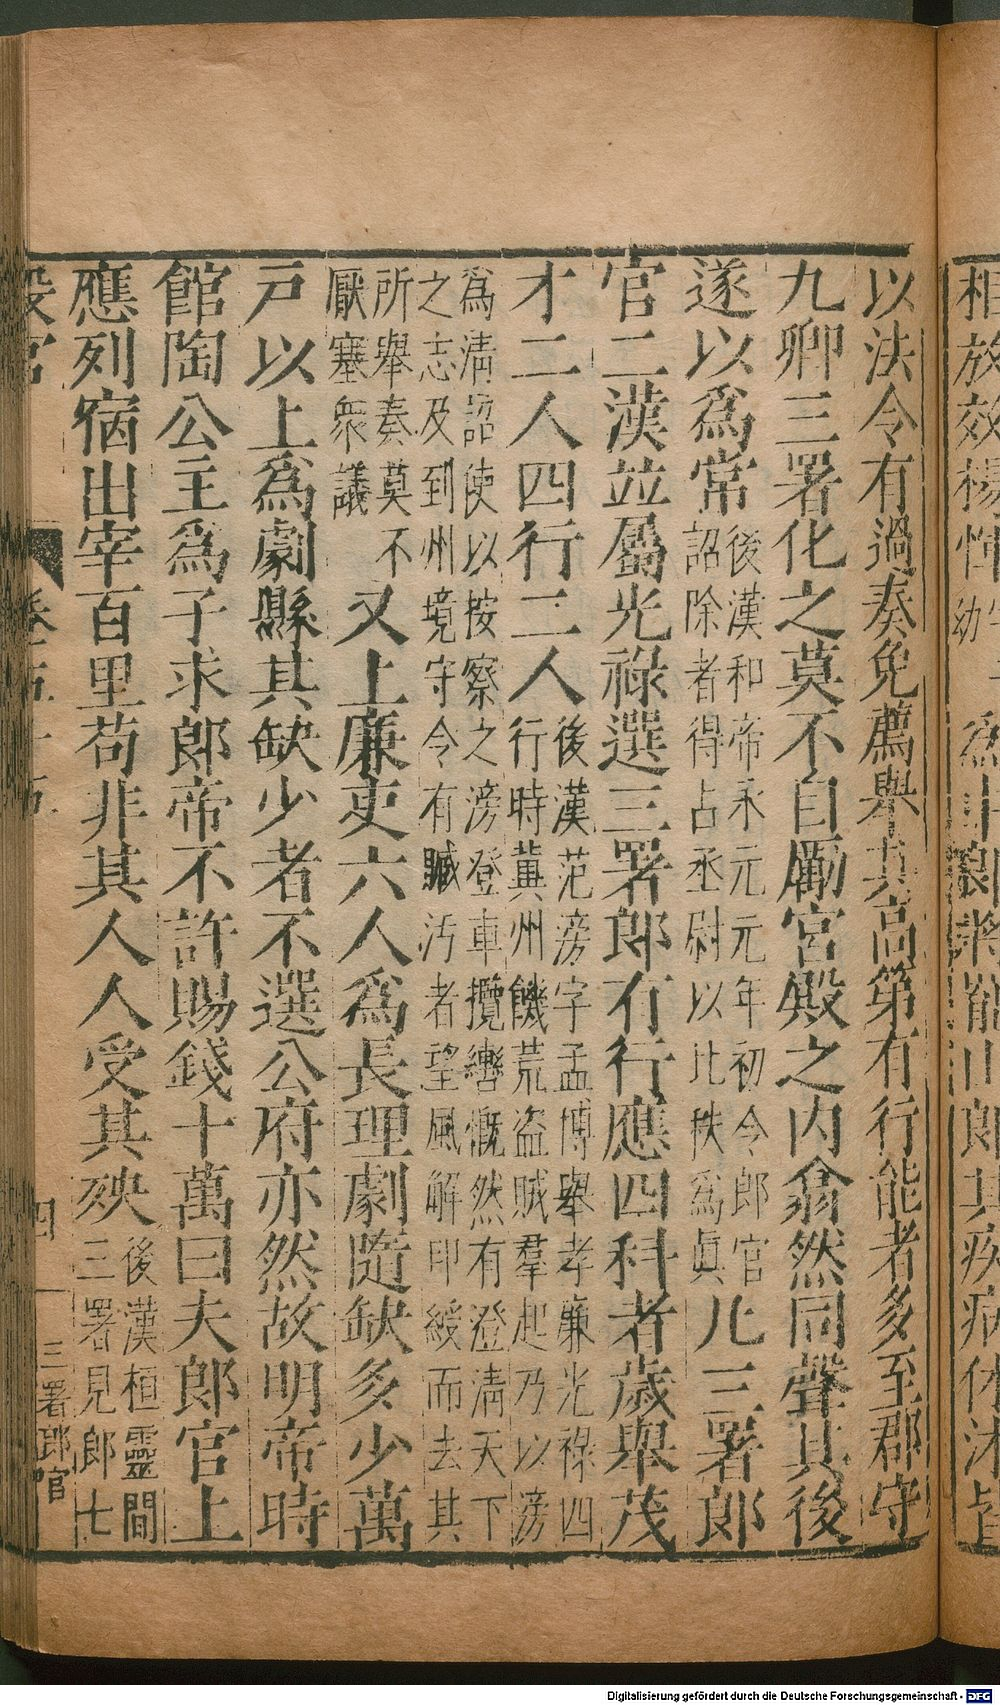 相放效楊惲
爲中郎將罷山郎其疾病休沐皆
以法令有過奏免薦舉其高第有行能者多至郡守
九卿三署化之莫不自勵宮殿之內翕然同聲其後
遂以爲常
後漢和帝永元元年初令郎官
詔除者得占丞尉以比秩爲眞
凡三署郎
官二漢並屬光祿選三署郎有行應四科者歲舉茂
才二人四行二人
後漢范滂字孟博舉孝廉光祿四
行時冀州饑荒盜賊羣起乃以滂
爲清詔使以按察之滂登車攬轡慨然有澄清天下
之志及到州境守令有贓汚者望風解印綬而去其
所舉奏莫不
厭塞衆議
又上廉吏六人爲長理劇隨缺多少萬
戸以上爲劇縣其缺少者不選公府亦然故明帝時
館陶公主爲子求郎帝不許賜錢十萬曰夫郎官上
應列宿出宰百里苟非其人人受其殃
後漢桓靈間
三署見郎七
四
三署郎官
Digitalisierung gefördert durch die Deutsche Forschungsgemeinschaft - DFG